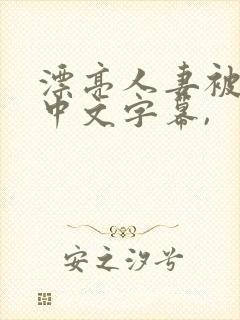 漂亮人妻被
中文字幕,
安之汐兮